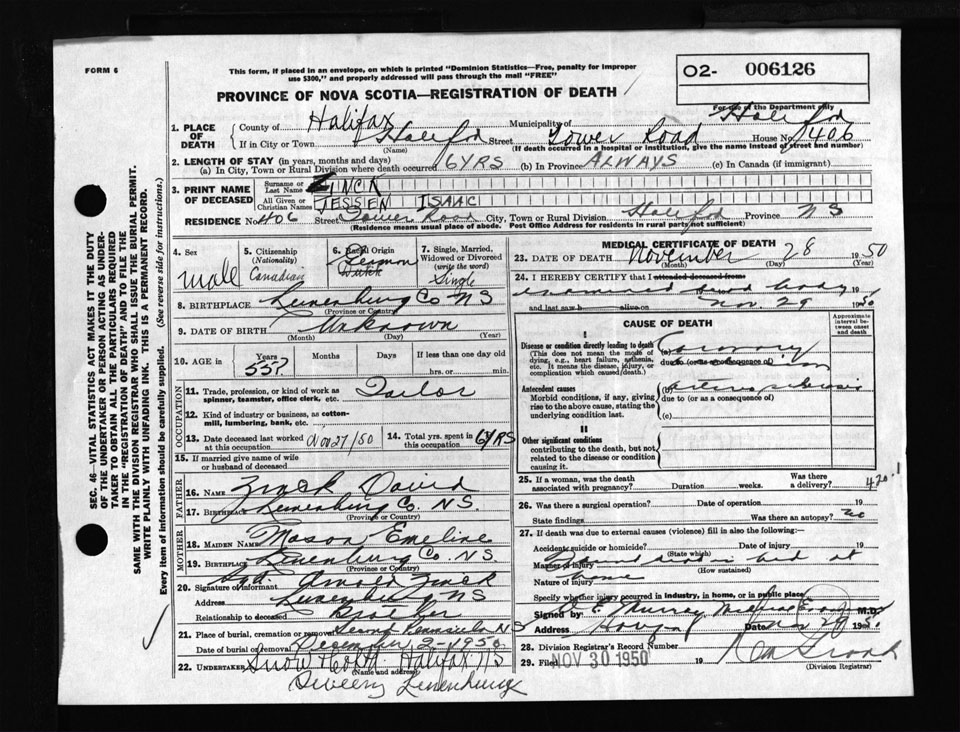 FORM 6
This form, if placed in an envelope, on which is printed "Dominion Statistics—Free, penalty for improper
use $300," and properly addressed will pass through the mail "FREE"
O2- 006126
For use of the Department only
PROVINCE OF NOVA SCOTIA—REGISTRATION OF DEATH
1. PLACE OF DEATH
County of Halifax Municipality of Halifax
If in City or Town Halifax (Name) Street Tower Road House No. 406
(If death occurred in a hospital or institution, give the name instead of street and number)
2. LENGTH OF STAY (in years, months and days)
(a) In City, Town or Rural Division where death occurred 6 YRS (b) In Province ALWAYS (c) In Canada (if immigrant)
3. PRINT NAME OF DECEASED
Surname or Last Name ZINCK
All Given or Christian Names TESSIEN ISAAC
RESIDENCE No. 406 Street Tower Road City, Town or Rural Division Halifax Province NS
(Residence means usual place of abode. Post Office Address for residents in rural parts not sufficient)
4. Sex male
5. Citizenship (Nationality) Canadian
6. Racial Origin German Dutch
7. Single, Married, Widowed or Divorced (write the word) Single
8. BIRTHPLACE Lunenburg Co NS
(Province or Country)
9. DATE OF BIRTH Unknown
(Month) (Day) (Year)
10. AGE in Years 55? Months Days If less than one day old hrs. or min.
OCCUPATION
11. Trade, profession, or kind of work as spinner, teamster, office clerk, etc. Tailor
12. Kind of industry or business, as cotton-mill, lumbering, bank, etc.
13. Date deceased last worked at this occupation Nov 27/50
14. Total yrs. spent in this occupation 6 YRS
15. If married give name of wife or husband of deceased
FATHER
16. Name Zinck David
17. Birthplace Lunenburg Co. N.S.
(Province or Country)
MOTHER
18. Maiden Name Mason Emeline
19. Birthplace Lunenburg Co. N S
(Province or Country)
20. Signature of informant Sgd. Zinck
Address Lunenburg NS
Relationship to deceased Brother
21. Place of burial, cremation or removal Peninsula N S
Date of burial or removal December 2-1950
22. UNDERTAKER Snow & Co Ltd. Halifax NS
(Name and address)
Sweeny Lunenburg
MEDICAL CERTIFICATE OF DEATH
23. DATE OF DEATH November 28 1950
(Month) (Day) (Year)
24. I HEREBY CERTIFY that I attended deceased from
examined dead body
and last saw h alive on Nov 29 1950
CAUSE OF DEATH
Approximate interval between onset and death
I
Disease or condition directly leading to death
(This does not mean the mode of dying, e.g., heart failure, asthenia, etc. It means the disease, injury, or complication which caused death.)
(a) Coronary
due to (or as a consequence of)
Antecedent causes
Morbid conditions, if any, giving rise to the above cause, stating the underlying condition last.
(b)
due to (or as a consequence of)
(c)
II
Other significant conditions
contributing to the death, but not related to the disease or condition causing it.
25. If a woman, was the death associated with pregnancy? Duration weeks. Was there a delivery?
420.1
26. Was there a surgical operation? Date of operation 19
State findings Was there an autopsy? no
27. If death was due to external causes (violence) fill in also the following:—
Accident, suicide or homicide? (State which) Date of injury 19
Manner of injury Found dead in bed at
(How sustained)
Nature of injury home
Specify whether injury occurred in industry, in home, or in public place
Signed by Murray Medical M.D.
Address Date Nov 29 1950
28. Division Registrar's Record Number
29. Filed NOV 30 1950 19
(Division Registrar)
SEC. 46—VITAL STATISTICS ACT MAKES IT THE DUTY
OF THE UNDERTAKER OR PERSON ACTING AS UNDER-
TAKER TO OBTAIN ALL THE PARTICULARS REQUIRED
IN THE "REGISTRATION OF DEATH" AND TO FILE THE
SAME WITH THE DIVISION REGISTRAR WHO SHALL ISSUE THE BURIAL PERMIT.
WRITE PLAINLY WITH UNFADING INK. THIS IS A PERMANENT RECORD.
Every item of information should be carefully supplied. (See reverse side for instructions.)